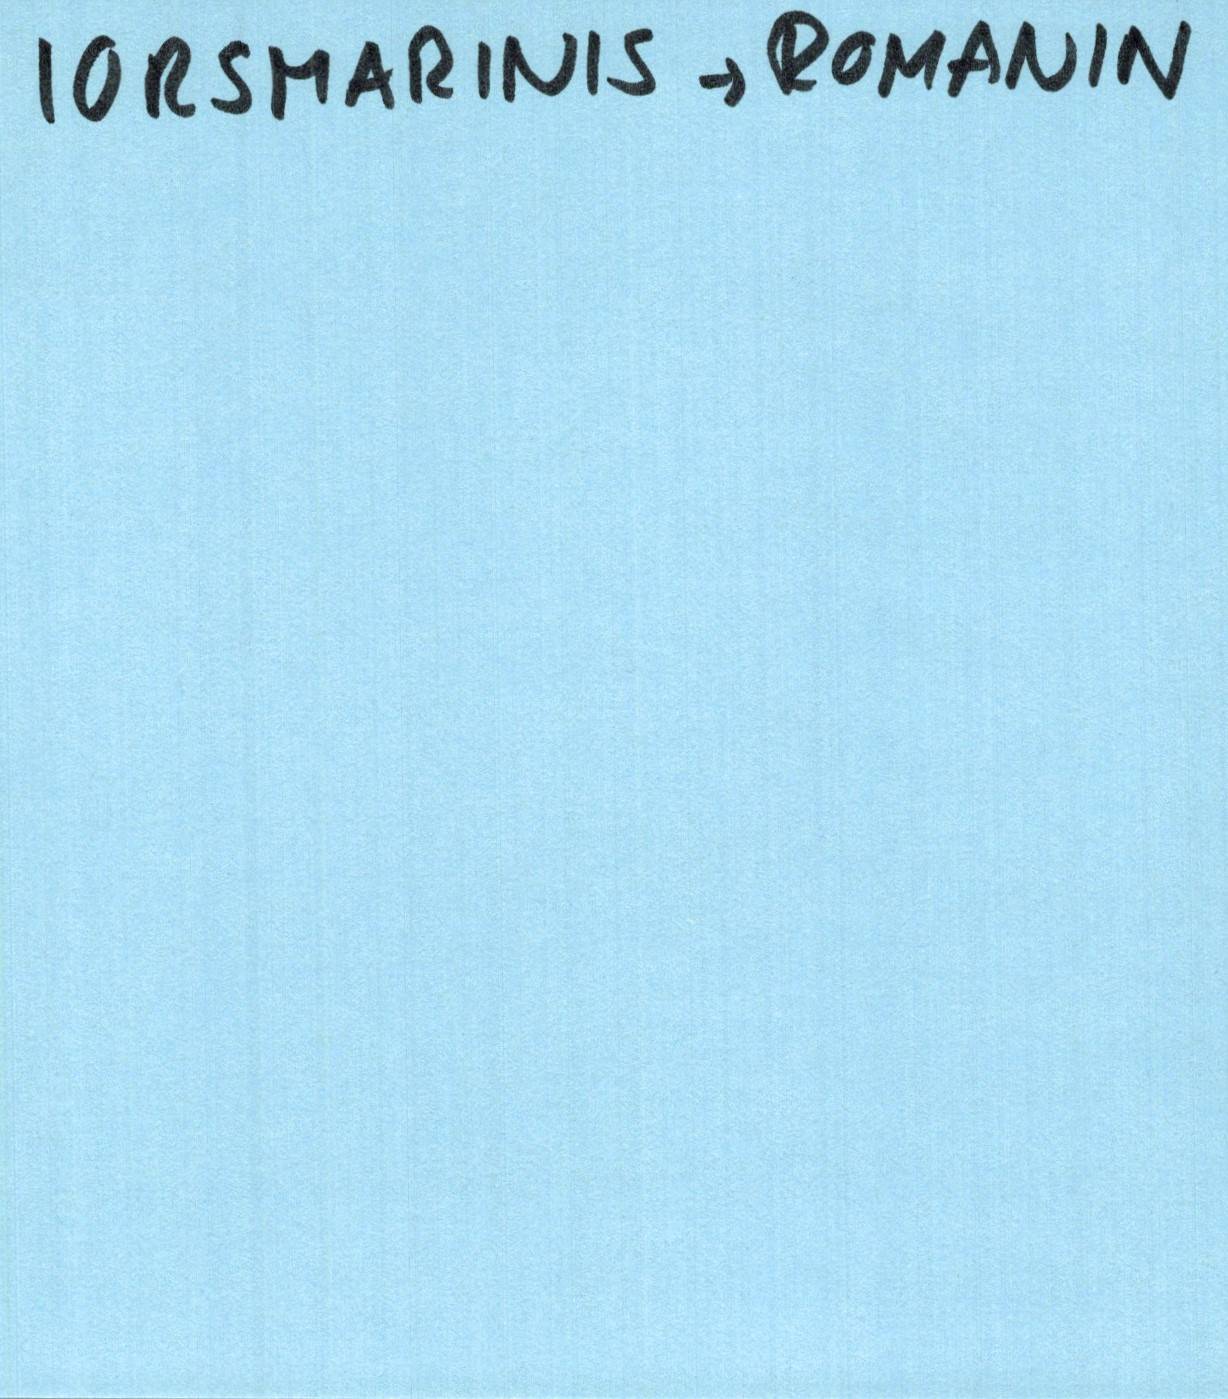 IORSMARINIS → ROMANIN